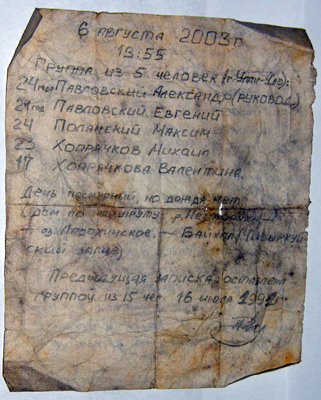 6 августа 2003 г
19:55
Группа из 5 человек (г. Улан-Удэ):
24 год Павловский Александр (руковод.)
21 год Павловский Евгений
24 Полянский Максим
23 Хопрячков Михаил
17 Хопрячкова Валентина.
День пасмурный, но дождя нет
Идём по маршруту р.
— оз. — Байкал (Чивыркуй
ский залив)
Предыдущая записка оставлена
группой из 15 чел 16 июля 1992 г